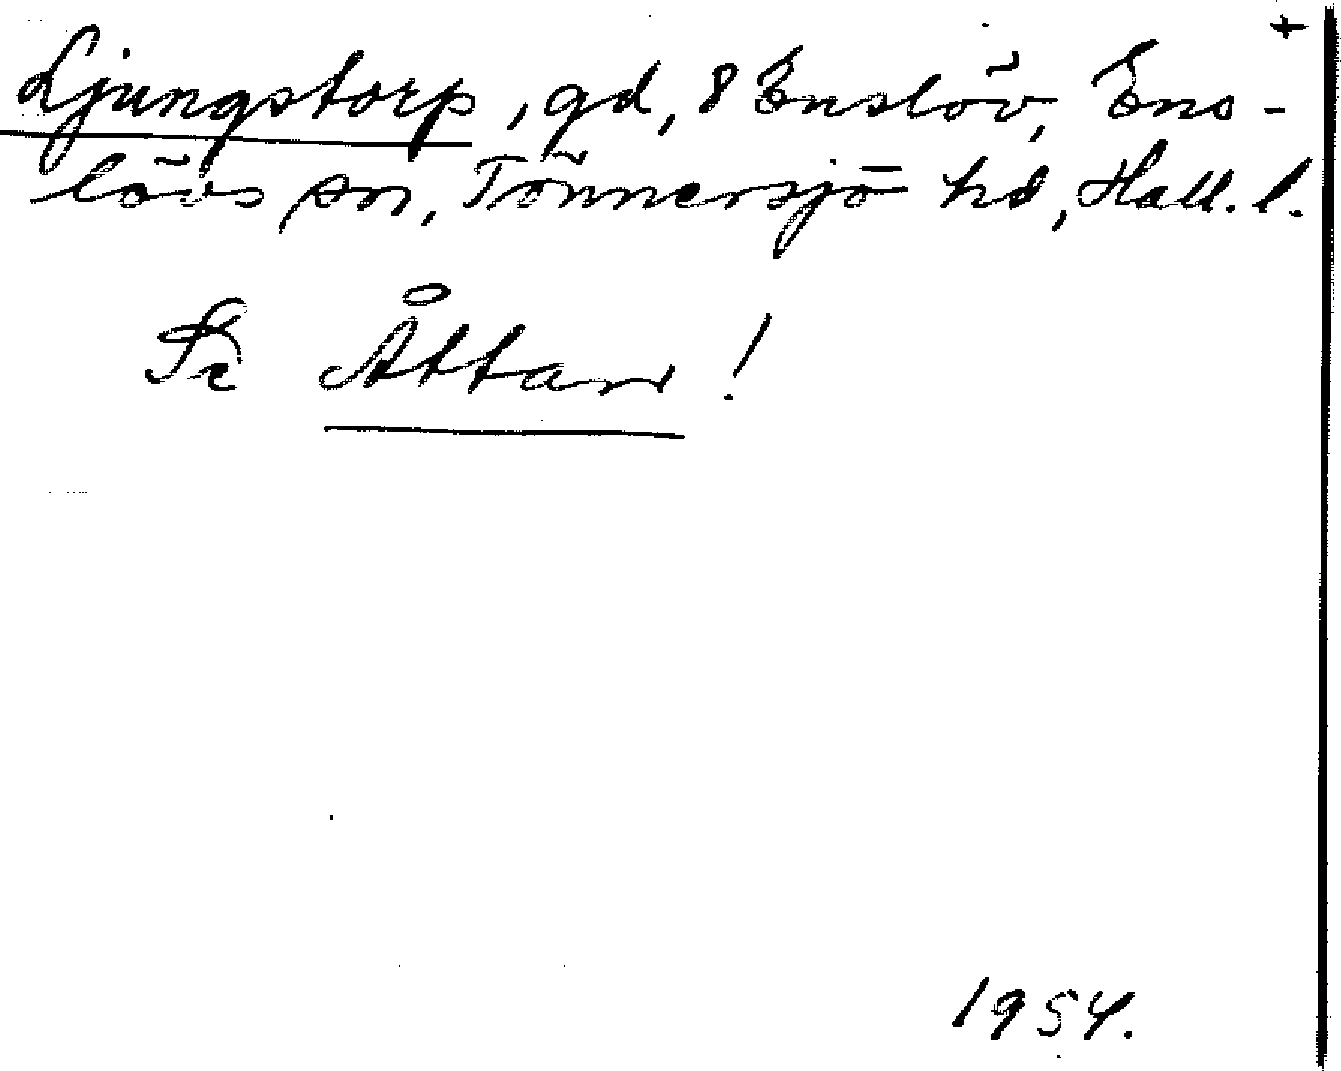 +
Ljungstorp, gd, 8 Enslöv, Ens-
lövs sn, Tönnersjö hd, Hall. l.
Se Åttan!
1954.